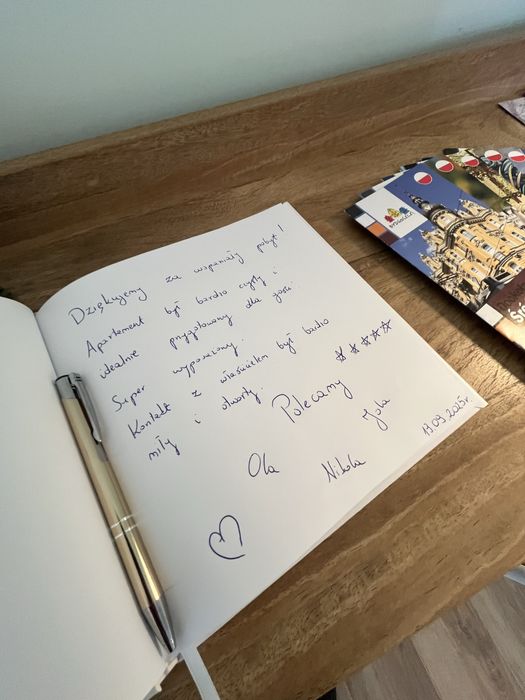 Dziękujemy za wspaniały pobyt!
Apartament był bardzo czysty i
idealnie przygotowany dla gości.
Super wyposażony.
Kontakt z właścicielem był bardzo
miły i otwarty.
☆☆☆☆☆
Polecamy
Ola Nikola Jola
13.09.2025r.